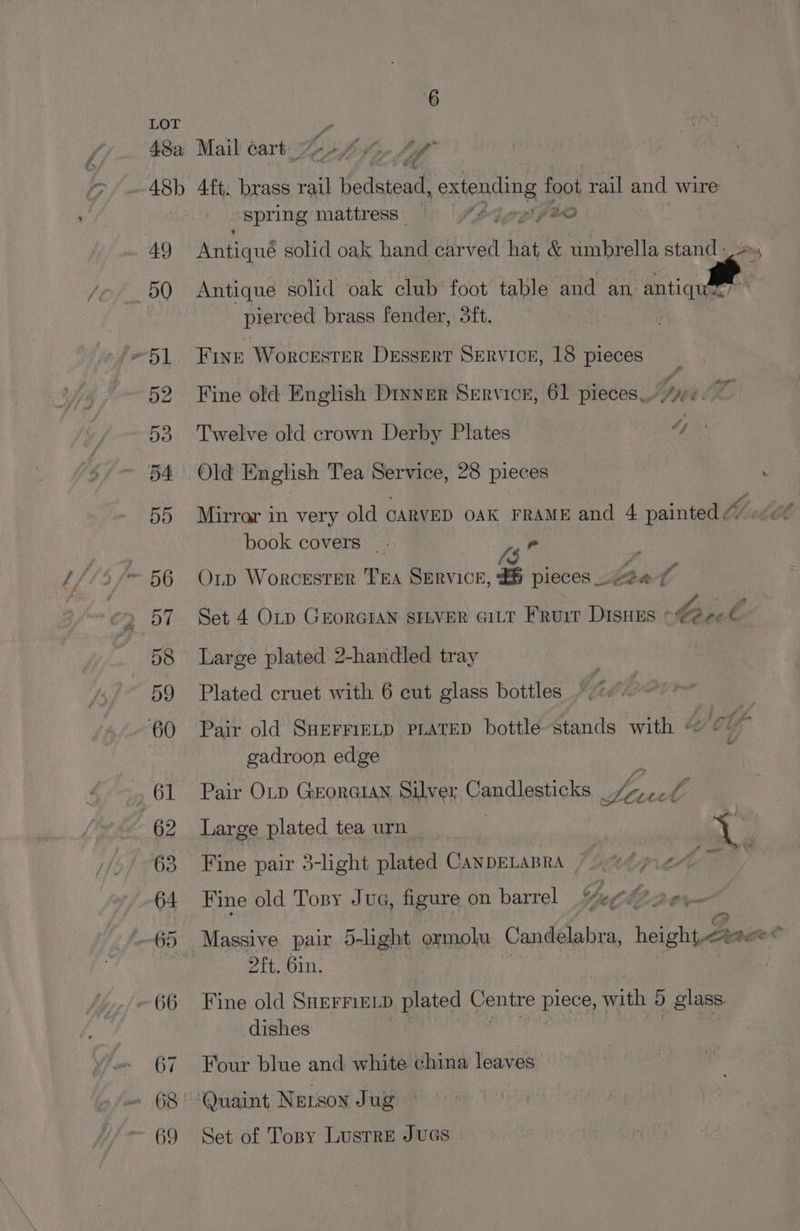 6
LOT
48a Mail cart
48b 4ft. brass rail bedstead, extending foot rail and wire
spring mattress
49 Antiqué solid oak hand carved hat & umbrella stand
50 Antique solid oak club foot table and an antique
pierced brass fender, 3ft.
51 FINE WORCESTER DESSERT SERVICE, 18 pieces
52 Fine old English DINNER SERVICE, 61 pieces
53 Twelve old crown Derby Plates
54 Old English Tea Service, 28 pieces
55 Mirror in very old CARVED OAK FRAME and 4 painted
book covers
56 OLD WORCESTER TEA SERVICE, pieces
57 Set 4 OLD GEORGIAN SILVER GILT FRUIT DISHES
58 Large plated 2-handled tray
59 Plated cruet with 6 cut glass bottles
60 Pair old SHEFFIELD PLATED bottle stands with
gadroon edge
61 Pair OLD GEORGIAN Silver Candlesticks
62 Large plated tea urn
63 Fine pair 3-light plated CANDELABRA
64 Fine old TOBY JUG, figure on barrel
65 Massive pair 5-light ormolu Candelabra, height
2ft. 6in.
66 Fine old SHEFFIELD plated Centre piece, with 5 glass
dishes
67 Four blue and white china leaves
68 Quaint NELSON Jug
69 Set of TOBY LUSTRE JUGS